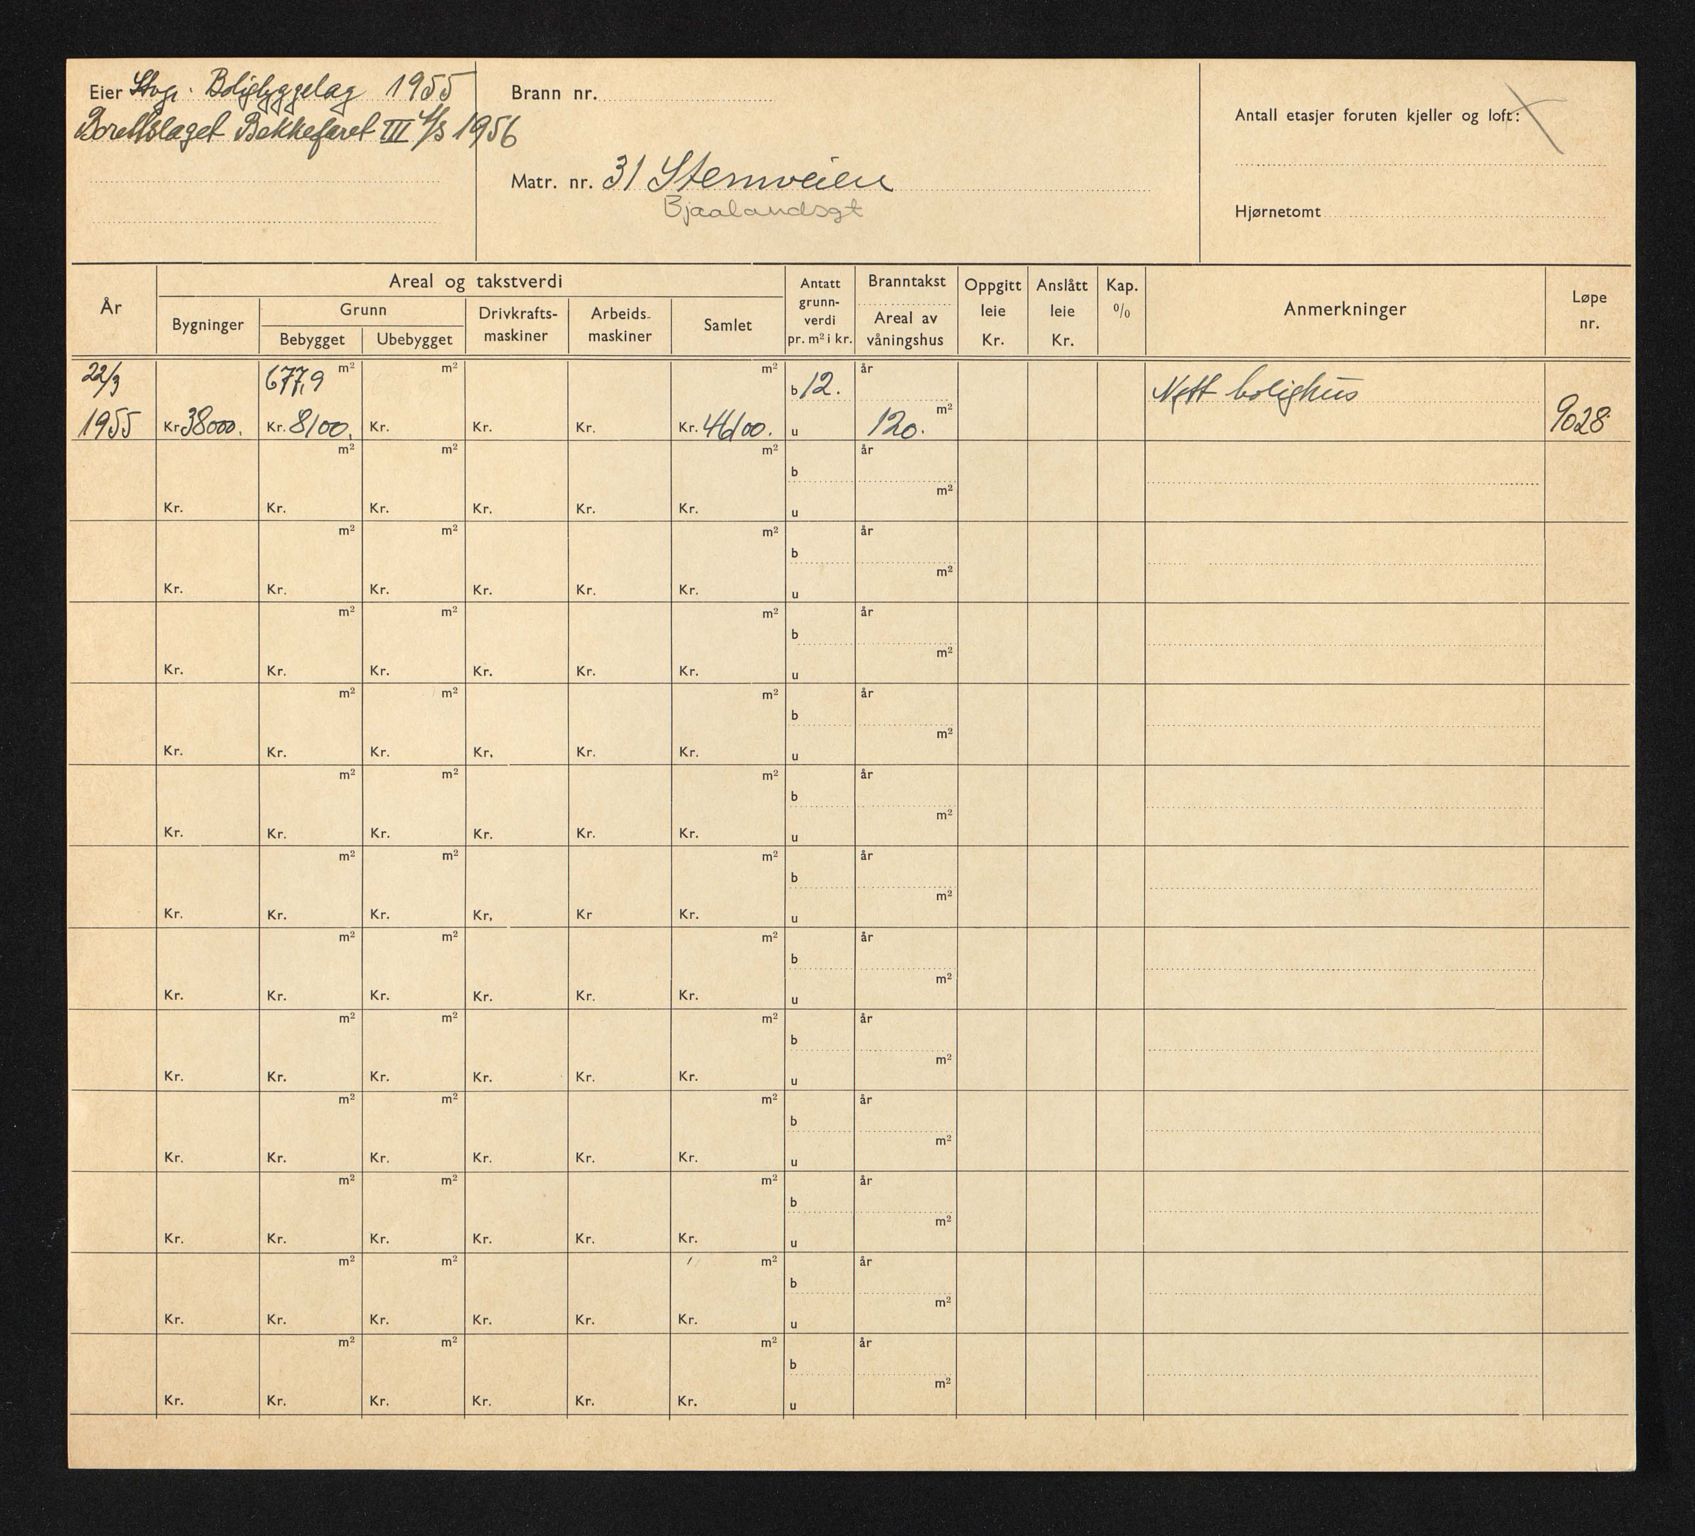 Eier Stvgr. Boligbyggelag 1955
Borettslaget Bekkefaret III A/S 1956
Brann nr.
Matr. nr. 31 Stemveien
Bjaalandsgt
Antall etasjer foruten kjeller og loft:
Hjørnetomt
År
Areal og takstverdi
Bygninger
Grunn
Bebygget
Ubebygget
Drivkrafts-
maskiner
Arbeids-
maskiner
Samlet
Antatt
grunn-
verdi
pr. m² i kr.
Branntakst
Areal av
våningshus
Oppgitt
leie
Kr.
Anslått
leie
Kr.
Kap.
%
Anmerkninger
Løpe
nr.
22/3 677,9 m² m² m² b 12. år Nytt bolighus
1955 Kr 38000. Kr. 8100. Kr. Kr. Kr. Kr. 46100. u 120. m² 9028
m² m² m² b år
Kr. Kr. Kr. Kr. Kr. Kr. u m²
m² m² m² b år
Kr. Kr. Kr. Kr. Kr. Kr. u m²
m² m² m² b år
Kr. Kr. Kr. Kr. Kr. Kr. u m²
m² m² m² b år
Kr. Kr. Kr. Kr. Kr. Kr. u m²
m² m² m² b år
Kr. Kr. Kr. Kr. Kr. Kr. u m²
m² m² m² b år
Kr. Kr. Kr. Kr. Kr Kr. u m²
m² m² m² b år
Kr. Kr. Kr. Kr. Kr. Kr. u m²
m² m² m² b år
Kr. Kr. Kr. Kr. Kr. Kr. u m²
m² m² m² b år
Kr. Kr. Kr. Kr. Kr. Kr. u m²
m² m² m² b år
Kr. Kr. Kr. Kr. Kr. Kr. u m²
m² m² m² b år
Kr. Kr. Kr. Kr. Kr. Kr. u m²
m² m² m² b år
Kr. Kr. Kr. Kr. Kr. Kr. u m²